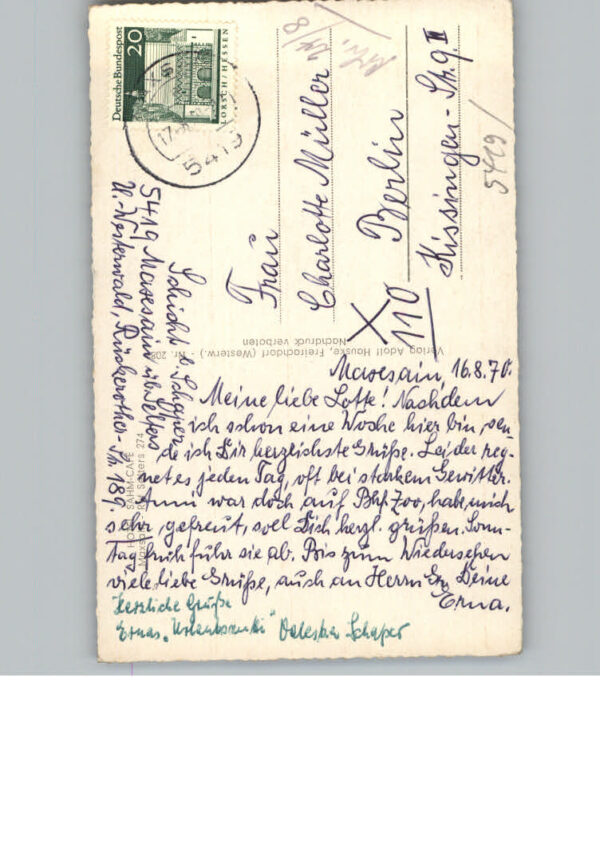 Deutsche Bundespost
20
LORSCH/HESSEN
17.
5419
Frau
Charlotte Müller
X
110 Berlin
Kissingen-Str. 9 II
5419/
Schicht b. Schaper
5419 Maresain üb. Selters
U.-Westerwald, Rückerother-Str. 189.
Verlag Adolf Hauske, Freirachdorf (Westerw.) - Nr.
Nachdruck verboten
SAHM-CAFÉ
Selters 274
Maresain, 16.8.70.
Meine liebe Lotte! Nachdem
ich schon eine Woche hier bin, sen-
de ich Dir herzlichste Grüße. Leider reg-
net es jeden Tag, oft bei starkem Gewitter.
Anni war doch auf Bhf. Zoo, habe mich
sehr gefreut, soll Dich herzl. grüßen. Sonn-
tag früh fuhr sie ab. Bis zum Wiedersehen
viele liebe Grüße, auch an Herrn Deine
Erna.
Herzliche Grüße
Ernas Schaper